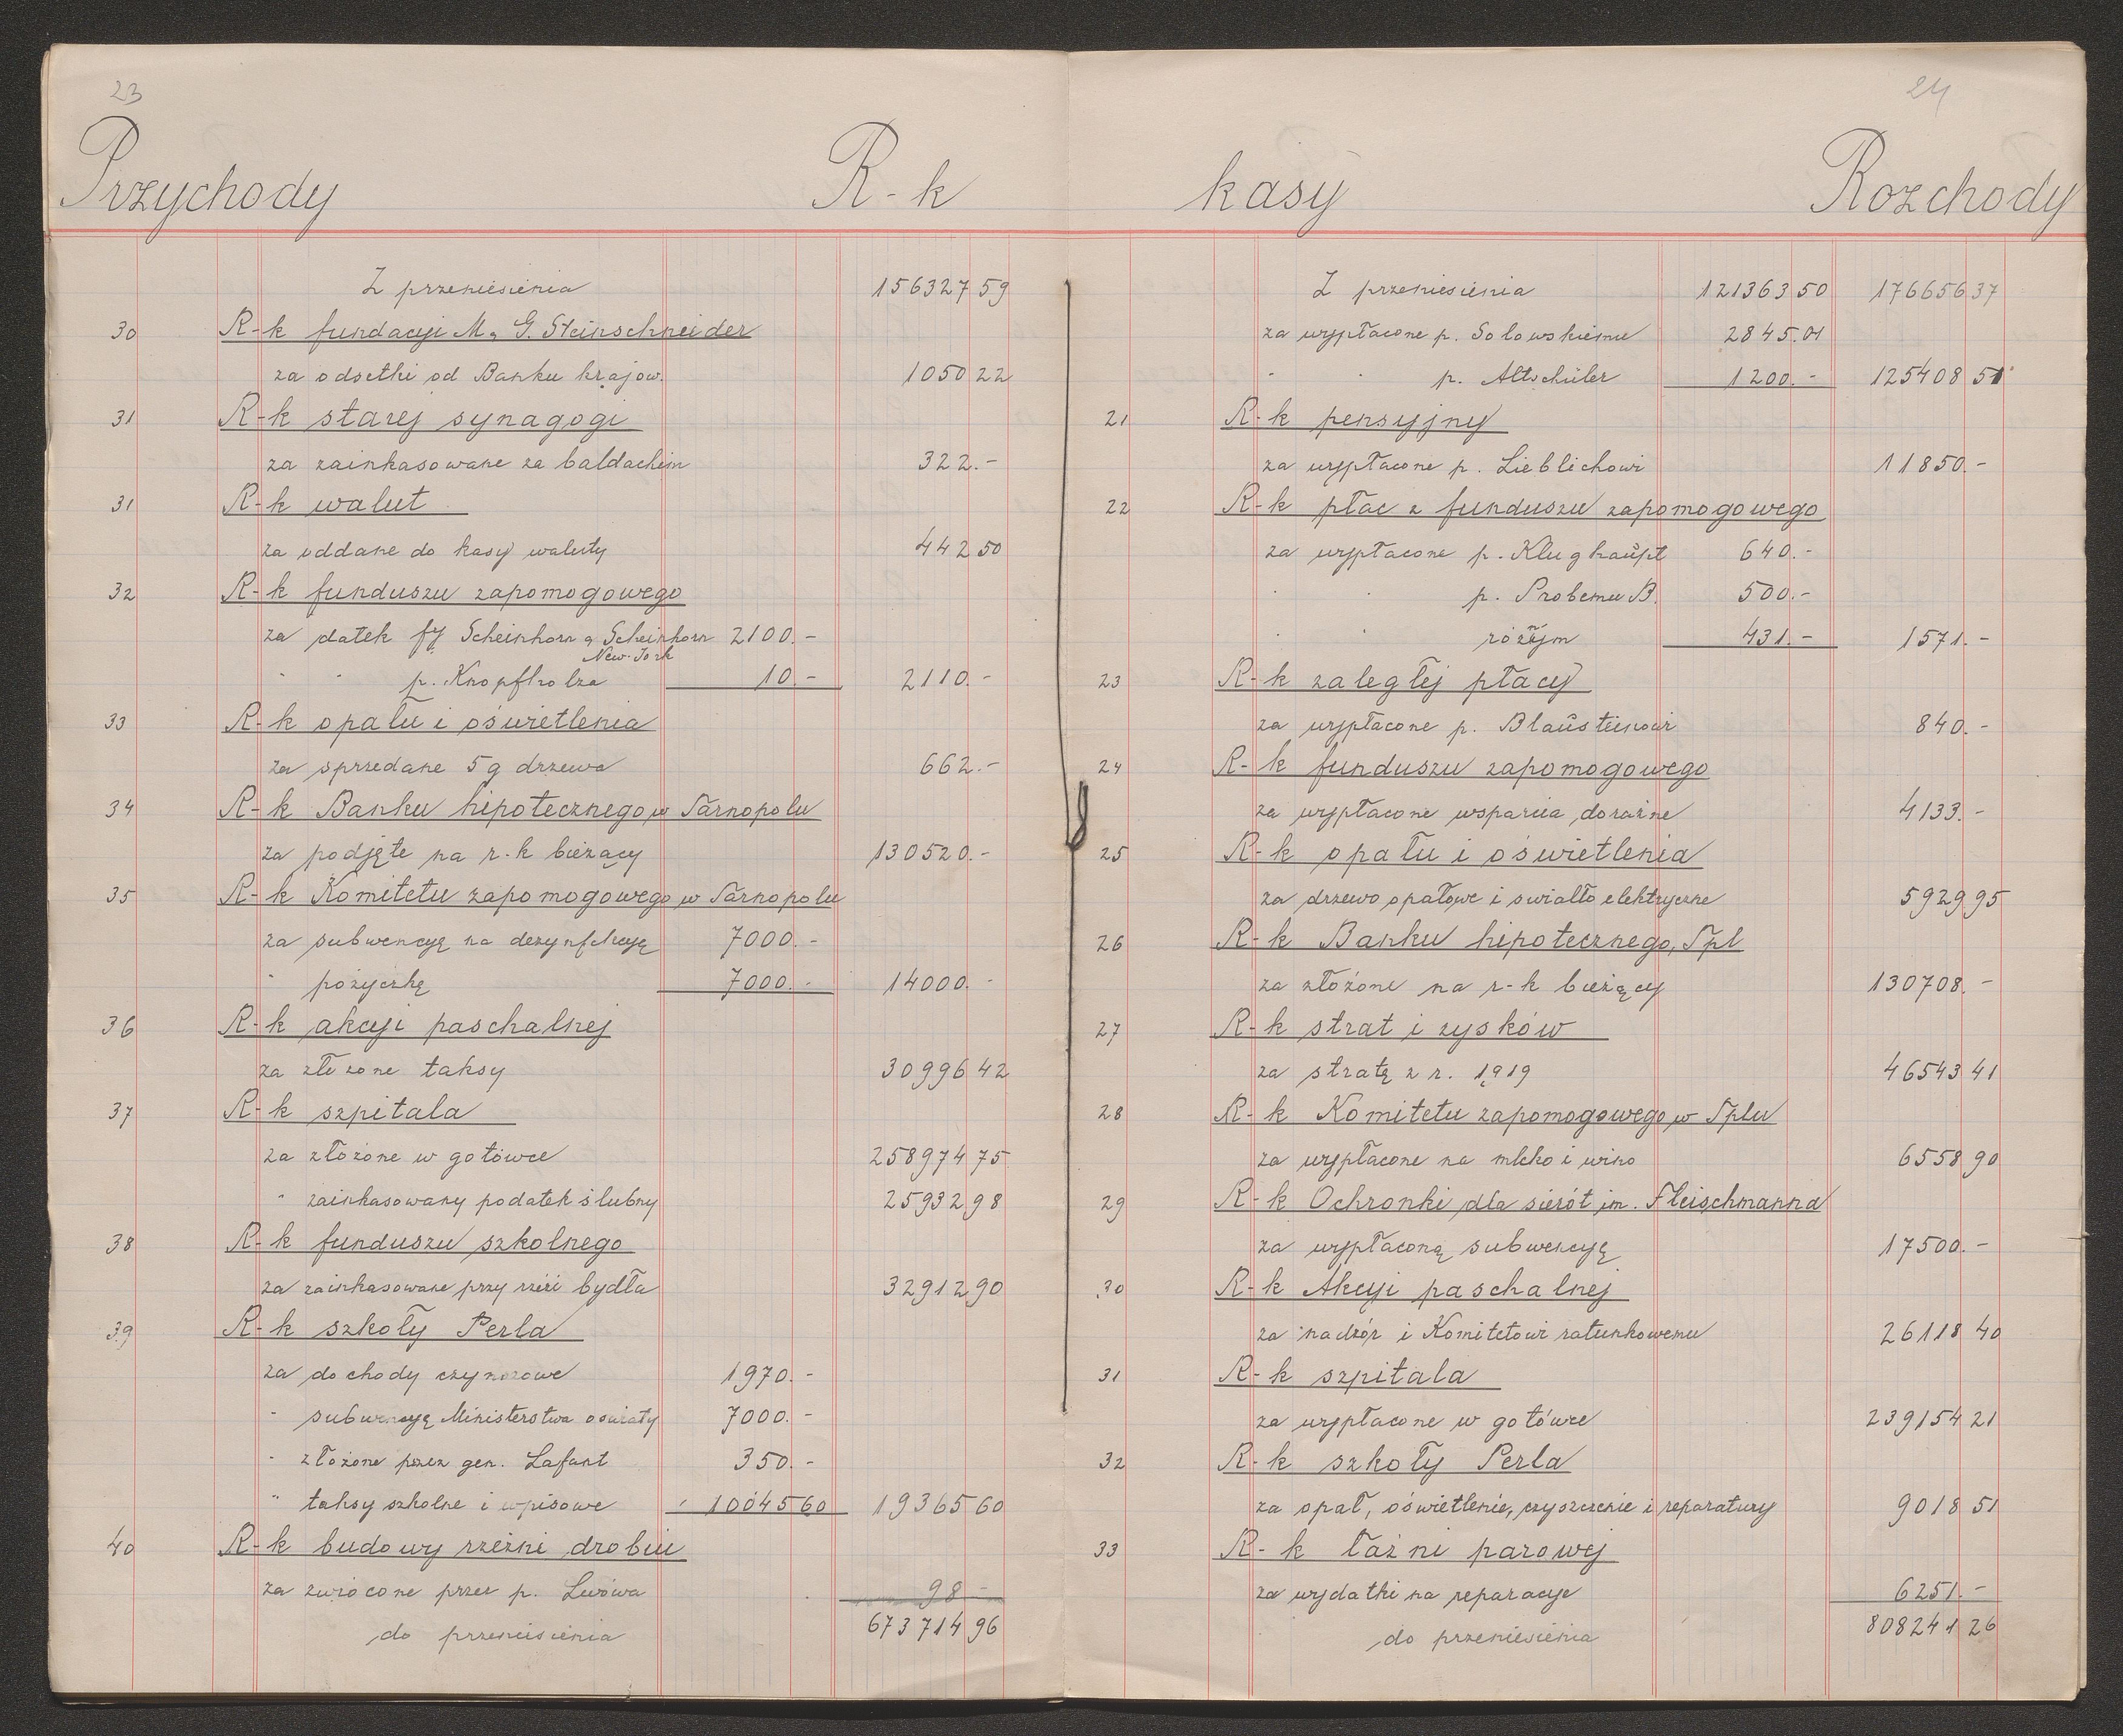 23
Przychody R-k
Z przeniesienia 156327 59
30 R-k fundacyi M. G. Steinschneider
za odsetki od Banku krajow. 1050 22
31 R-k starej synagogi
za zainkasowane za baldachim 322.-
31 R-k walut
za oddane do kasy waluty 442 50
32 R-k funduszu zapomogowego
za datek fy Scheinhorn a Scheinhorn 2100.-
New-Jork
" " p. Knopfholza 10.- 2110.-
33 R-k opału i oświetlenia
za sprzedane 5 q drzewa 662.-
34 R-k Banku hipotecznego w Tarnopolu
za podjęte na r-k bieżący 130520.-
35 R-k Komitetu zapomogowego w Tarnopolu
za subwencyę na dezynfekcyę 7000.-
" pożyczkę 7000.- 14000.-
36 R-k akcyi paschalnej
za złożone taksy 30996 42
37 R-k szpitala
za złożone w gotówce 258974 75
" zainkasowany podatek ślubny 25932 98
38 R-k funduszu szkolnego
za zainkasowane przy rzezi bydła 32912 90
39 R-k szkoły Perla
za dochody czynszowe 1970.-
" subwencyę Ministerstwa oświaty 7000.-
" złożone przez gen. Lafant 350.-
" taksy szkolne i wpisowe 10045 60 19365 60
40 R-k budowy rzeźni drobiu
za zwrócone przez p. Lwówa 98.-
do przeniesienia 673714 96
24
kasy Rozchody
Z przeniesienia 121363 50 176656 37
za wypłacone p. Sołowskiemu 2845.01
" " p. Altschüler 1200.- 125408 51
21 R-k pensyjny
za wypłacone p. Lieblichowi 11850.-
22 R-k płac z funduszu zapomogowego
za wypłacone p. Klughaupt 640.-
" " p. Probemu B. 500.-
" " różnym 431.- 1571.-
23 R-k zaległej płacy
za wypłacone p. Blausteinowi 840.-
24 R-k funduszu zapomogowego
za wypłacone wsparcia doraźne 4133.-
25 R-k opału i oświetlenia
za drzewo opałowe i swiatło elektryczne 5929 95
26 R-k Banku hipotecznego, Tpl
za złożone na r-k bieżący 130708.-
27 R-k strat i zysków
za stratę z r. 1919 46543 41
28 R-k Komitetu zapomogowego w Tplu
za wypłacone na mleko i wino 6558 90
29 R-k Ochronki dla sierót im. Fleischmanna
za wypłaconą subwencyę 17500.-
30 R-k Akcyi paschalnej
za nadzór i Komitetowi ratunkowemu 26118 40
31 R-k szpitala
za wypłacone w gotówce 239154 21
32 R-k szkoły Perla
za opał, oświetlenie, czyszczenie i reparatury 9018 51
33 R-k łaźni parowej
za wydatki na reparacye 6251.-
do przeniesienia 808241 26